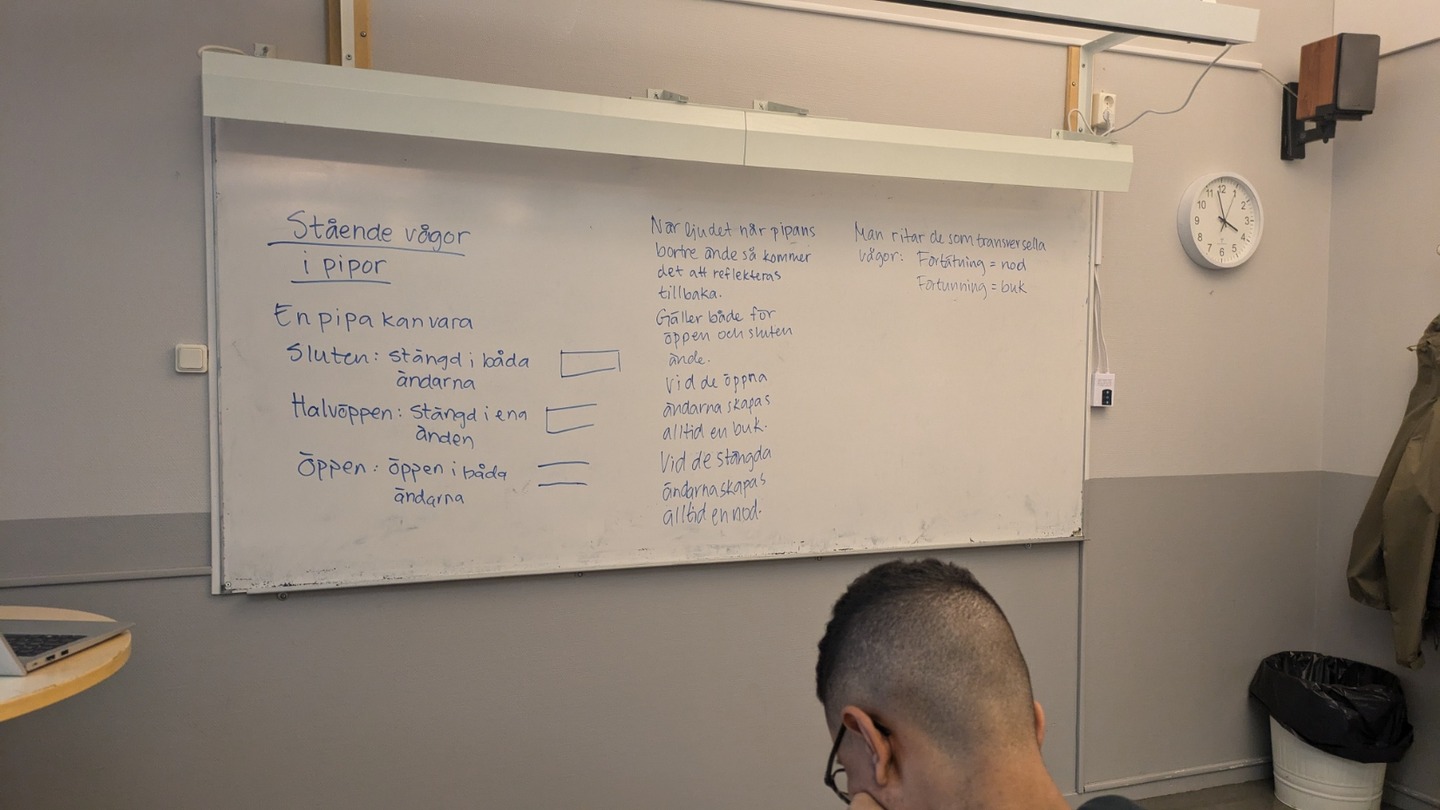 Stående vågor
i pipor
En pipa kan vara
Sluten: stängd i båda
ändarna
Halvöppen: stängd i ena
änden
Öppen: öppen i båda
ändarna
När ljudet når pipans
bortre ände så kommer
det att reflekteras
tillbaka.
Gäller både för
öppen och sluten
ände.
Vid de öppna
ändarna skapas
alltid en buk.
Vid de stängda
ändarna skapas
alltid en nod.
Man ritar de som transversella
vågor: Förtätning = nod
Förtunning = buk
12
1
2
3
4
5
6
7
8
9
10
11